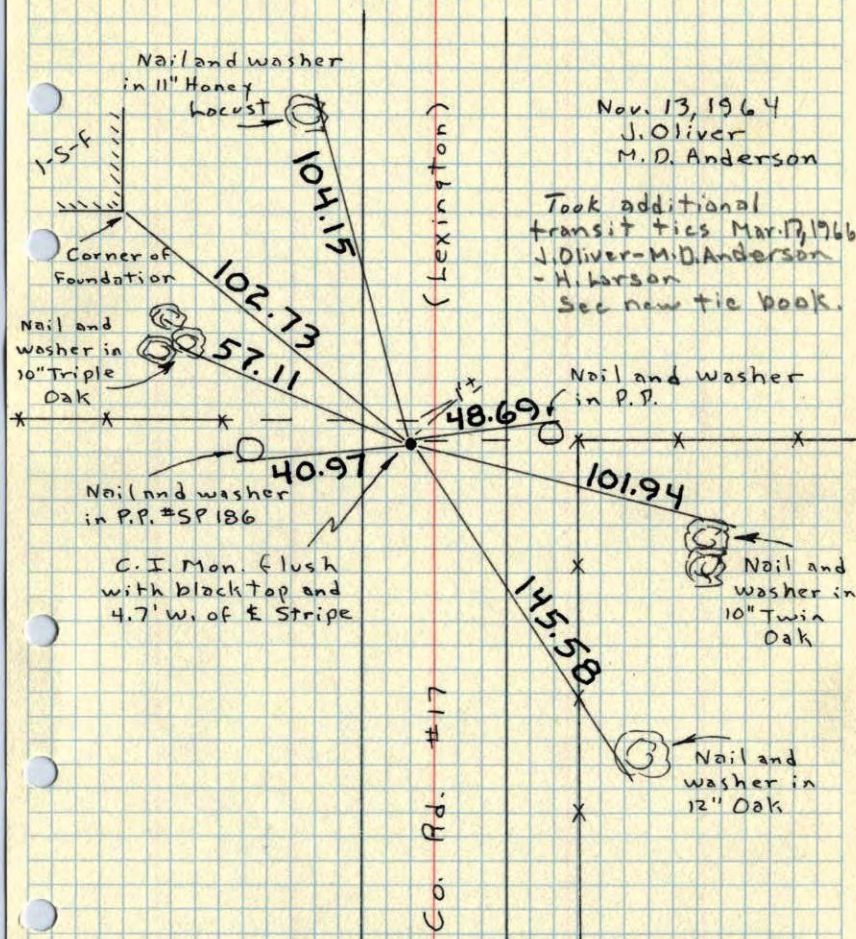 Nail and washer
in 11" Honey
Locust
Nov. 13, 1964
J. Oliver
M. D. Anderson
1-S-F
104.15
(Lexington)
Took additional
transit ties Mar. 17, 1966
J. Oliver-M.D. Anderson
- H. Larson
See new tie book.
Corner of
Foundation
102.73
Nail and
washer in
10" Triple
Oak
57.11
1'±
48.69
Nail and washer
in P.P.
40.97
Nail and washer
in P.P. #SP 186
101.94
C.I. Mon. flush
with blacktop and
4.7' W. of ℄ Stripe
Nail and
washer in
10" Twin
Oak
145.58
Nail and
washer in
12" Oak
Co. Rd. #17